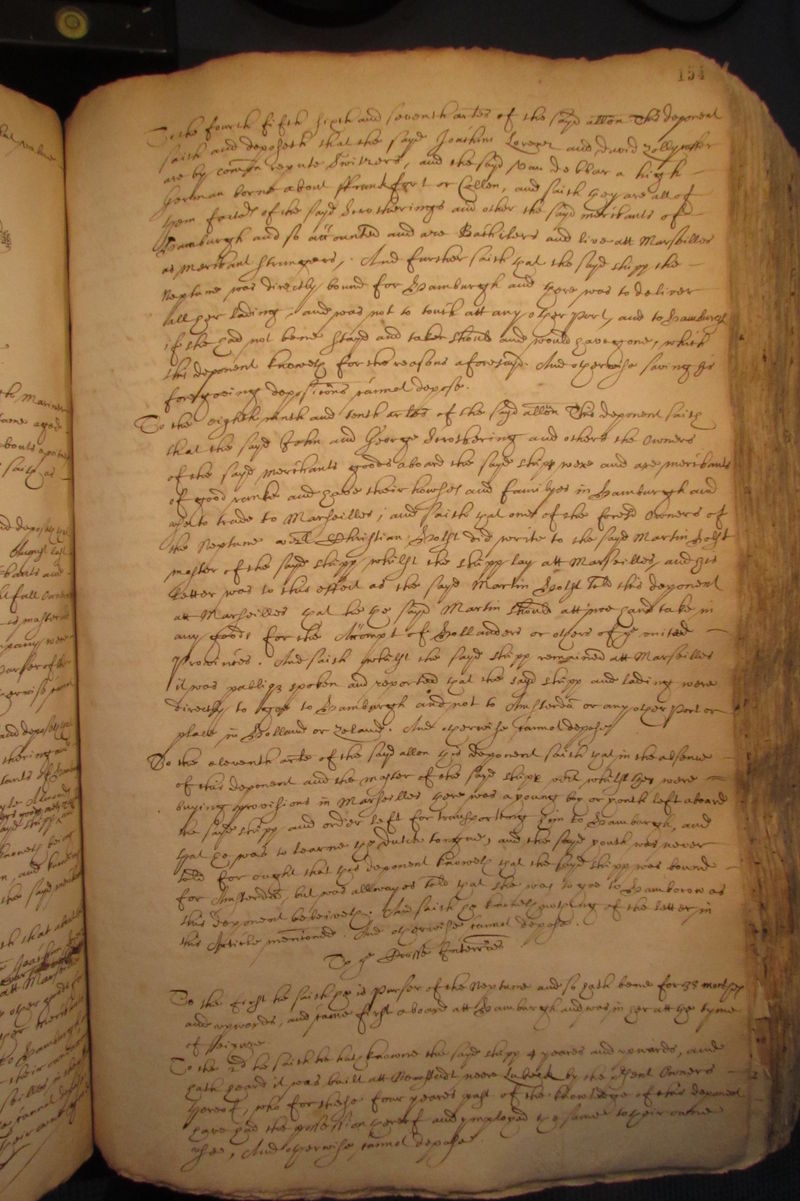 154
To the fourth fifth sixth and seventh artes of the sayd allon This deponent
saith and deposeth that the sayd Joachim Lorenz and david Zollykoffer
are by comon repute Switzers, and the sayd Van de bbar a high
German borne about ffrankfort or Collen, and saith they are all of
them factors of the sayd Strotherings and other the sayd merchants of
Hamburgh and so accounted and are Batchlers and live att Marseilles
as merchant strangers, And further saith that the sayd shipp the
Neptune was directly bound for Hamburgh and there was to deliver
all her lading, and was not to touch att any other port, and to Hamburgh
if she had not bene stayd and taken should and would have gone, which
this deponent knoweth for the reasons aforesayd. And otherwise saving his
foregoeing depositions cannot depose.
To the eighth ninth and tenth artes of the sayd allon This deponent saith
that the sayd John and George Strothering and others the Owners
of the sayd merchants goods aboard the sayd shipp were and are merchants
of good ranke and have their howses and familyes in Hamburgh and
use to trade to Marseilles, and saith that one of the foresd Owners of
the Neptune Christian Holst did write to the sayd Martin Holst
master of the sayd shipp whilst the shipp lay att Marseilles, and his
letter was to this effect as the sayd Martin Holst told this deponent
att Marseilles that he the sayd Martin should att noe hand take in
any goods for the Accompt of Hollanders or others of ye united
Provinces. And saith whilst the sayd shipp remained att Marseilles
it was publiq spoken and reported that the sayd shipp and lading were
directly to goe to Hamburgh and not to Amsterdam or any other Port or
place in Holland or Zeland. And otherwise cannot depose
To the eleventh arte of the said allon this deponent saith that in the absence
of this deponent and the master of the sayd shipp whilst they were
buying provisions in Marseilles there was a young boy or youth left aboard
the sayd shipp and order left for transporting him to Hamburgh, and
that he was to learne the dutch tongue, and the sayd youth was never
told for ought that this deponent knoweth that the sayd shipp was bound
for Amsterdam, but was allwayes told that she was to goe to Hamborow as
this deponent beleiveth. And saith he knoweth nothing of the letter in
this Article mentioned. And otherwise cannot depose.
To ye Crosse Interries
To the first he saith he is Purser of the Neptune and so hath bene for 38 moneths
and upwards, and came first aboard att Hamburgh and was in her att the tyme
of seizure
To the 2d he saith he hath knowne the sayd shipp 4 yeares and upwards, and
hath heard it was built att Newstadt neere Lubeck by the present Owners
thereof, who for these four yeares past of the knowledge of this deponent
have had the possession thereof and imployed the same to their owne
uses, And otherwise cannot depose